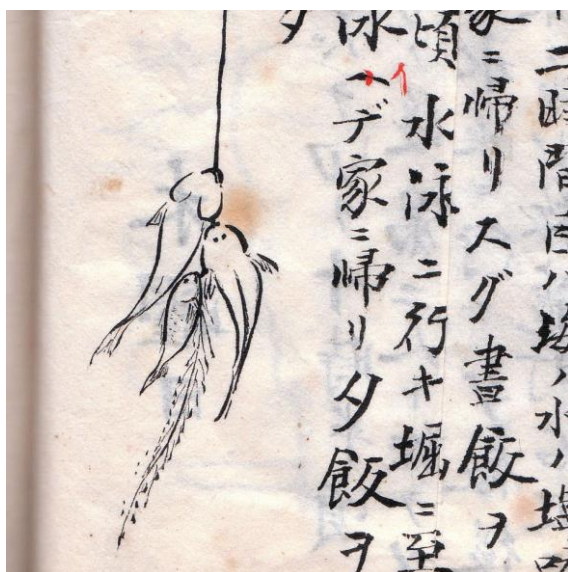 二時間目ハ海ノ水ノ塩
家ニ帰リスグ晝飯ヲ
頃水泳ニ行キ堀ニ至
イ
泳ヘデ家ニ帰リ夕飯ヲ
タ